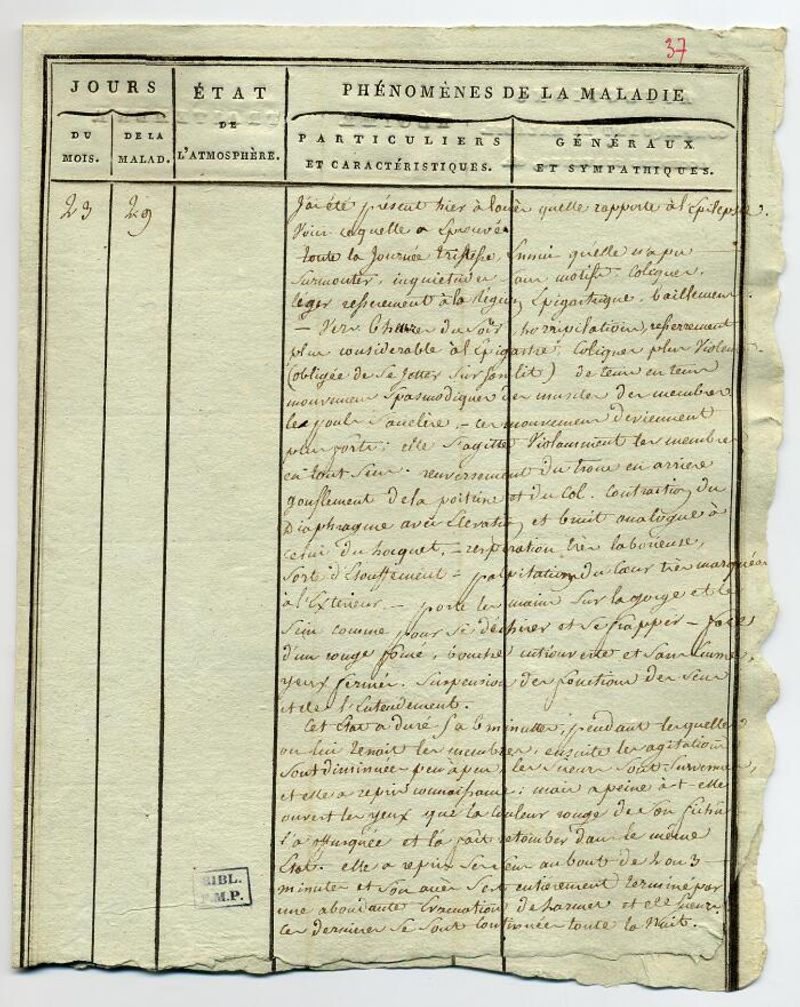 37
JOURS
ÉTAT
PHÉNOMÈNES DE LA MALADIE
DU
DE LA
DE
PARTICULIERS
GÉNÉRAUX
MOIS.
MALAD.
L'ATMOSPHÈRE.
ET CARACTÉRISTIQUES.
ET SYMPATHIQUES.
23 29
J'ai été présent hier à l'accès quelle rapporte à l'Epilepsie.
Voici ce quelle a Eprouvée
toute la Journée tristesse, Ennui qu'elle n'a pu
surmonter, inquietudes sans motifs. coliques,
leger resserrement à la Région Epigastrique, baillemens.
— Vers 6 heures du soir, horripilations, resserrement
plus considerable à l'Epigastre, coliques plus Violentes
(obligée de se jetter sur son lit) de tems en tems
mouvemens spasmodiques des muscles des membres
le pouls s'accélère, — ces mouvemens deviennent
plus forts; elle s'agitte Violamment les membres
en tout sens. renversement du tronc en arriere
gonflement de la poitrine et du Col. Contraction du
Diaphragme avec Elevation et bruit analogue à
celui du hocquet, — respiration très laborieuse,
sorte d'Etouffement — palpitations du Cœur très marquées
à l'Exterieur, — porte les mains sur la gorge et le
sein comme pour se déchirer et se frapper — face
d'un rouge foncé, bouche entrouverte et sans Ecume,
yeux fermés. Suspension des fonctions des sens
et de l'Entendement.
Cet Etat a duré 5 a 6 minuttes, pendant lesquelles
on lui tenoit les membres, ensuite les agitations
sont diminuées peu à peu, les sueurs sont survenues,
et elle a repris connaissance: mais a peine a-t-elle
ouvert les yeux que la couleur rouge de son
l'a offusquée et l'a fait retomber dans le même
Etat. elle a repris ses sens au bout de 2 ou 3
minutes et son accès s'est entierement terminé par
une abondante Evacuation de larmes et de sueurs.
ces dernieres se sont continuées toute la Nuit.
BIBL.
P.M.P.